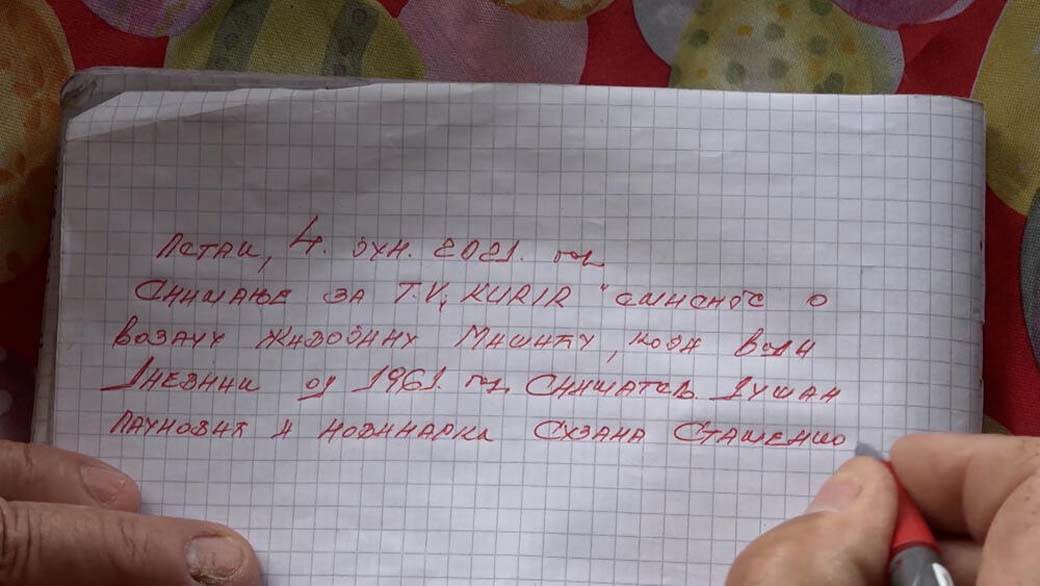 Петак, 4. јун. 2021. год
Снимање за T.V, KURIR "емисије о
возачу Живојину Мишићу, који води
Дневник од 1961. год, Сниматељ. Душан
Пауновић и новинарка Сузана